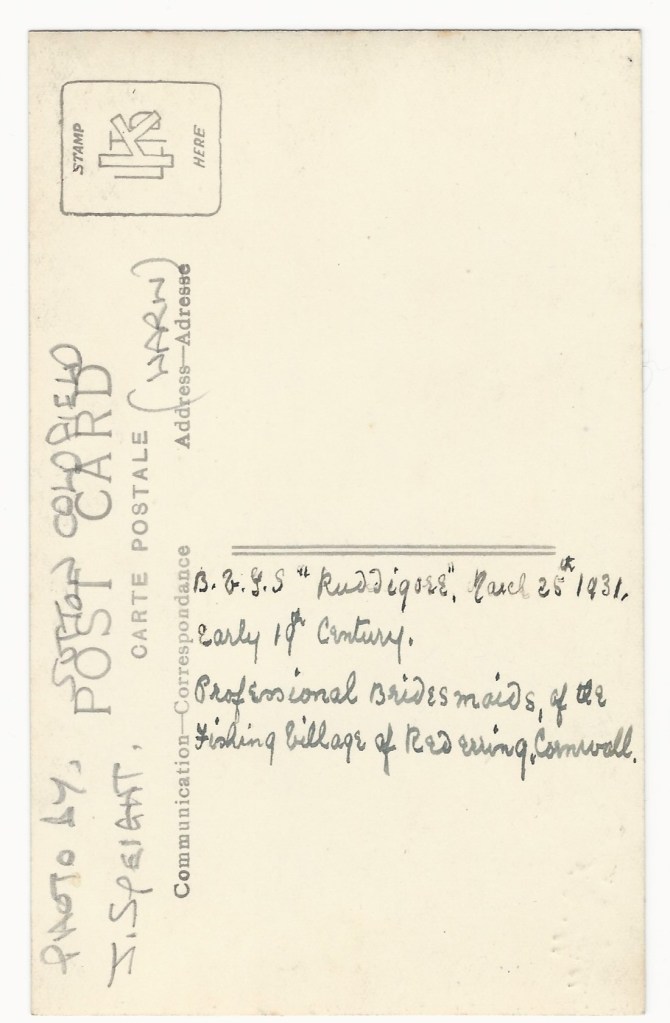 STAMP
HERE
POST CARD
CARTE POSTALE
Communication—Correspondence
Address—Adresse
PHOTO BY, SUTTON COLDFIELD
J. SPEIGHT, (WARW)
"Ruddigore", March 25th 1931.
Early 19th Century.
Professional Bridesmaids, of the
Fishing Village of Rederring, Cornwall.